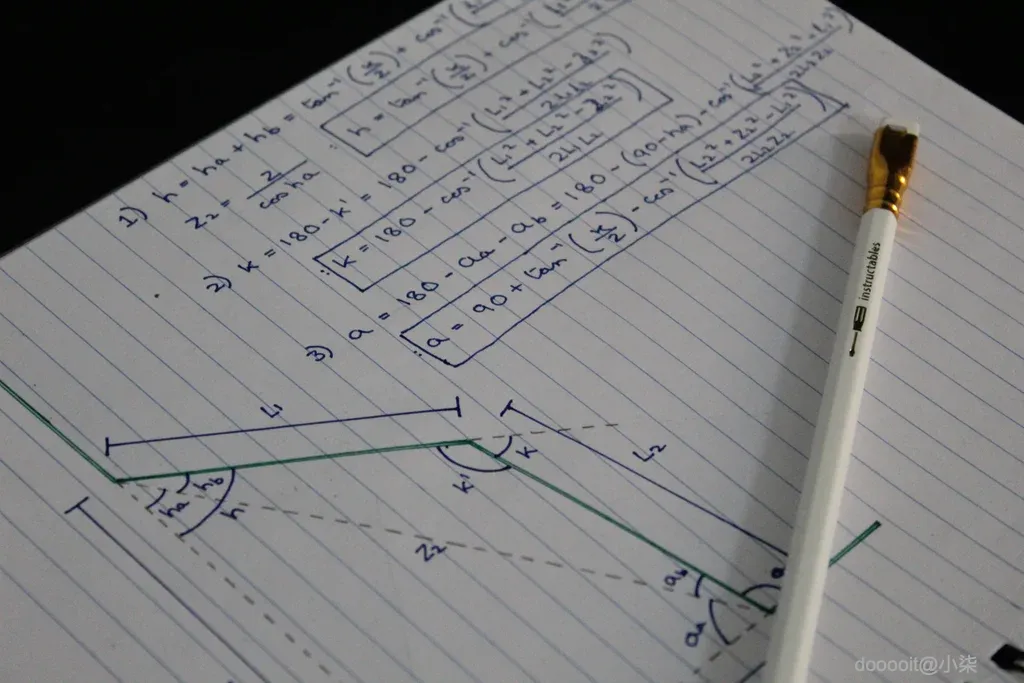 1) h = ha + hb = tan⁻¹(x/z) + cos⁻¹(
h = tan⁻¹(x/z) + cos⁻¹(
z₂ = z/cos ha
2) K = 180 - K' = 180 - cos⁻¹((L₁² + L₂² - z₂²)/2L₁L₂)
∴ K = 180 - cos⁻¹((L₁² + L₂² - z₂²)/2L₁L₂)
3) a = 180 - aa - ab = 180 - (90 - ha) - cos⁻¹((L₂² + z₂² - L₁²)/2L₂z₂)
∴ a = 90 + tan⁻¹(x/z) - cos⁻¹((L₂² + z₂² - L₁²)/2L₂z₂)
L₁
L₂
K
K'
hb
ha
h
z₂
ab
aa
a
instructables
dooooit@小柒